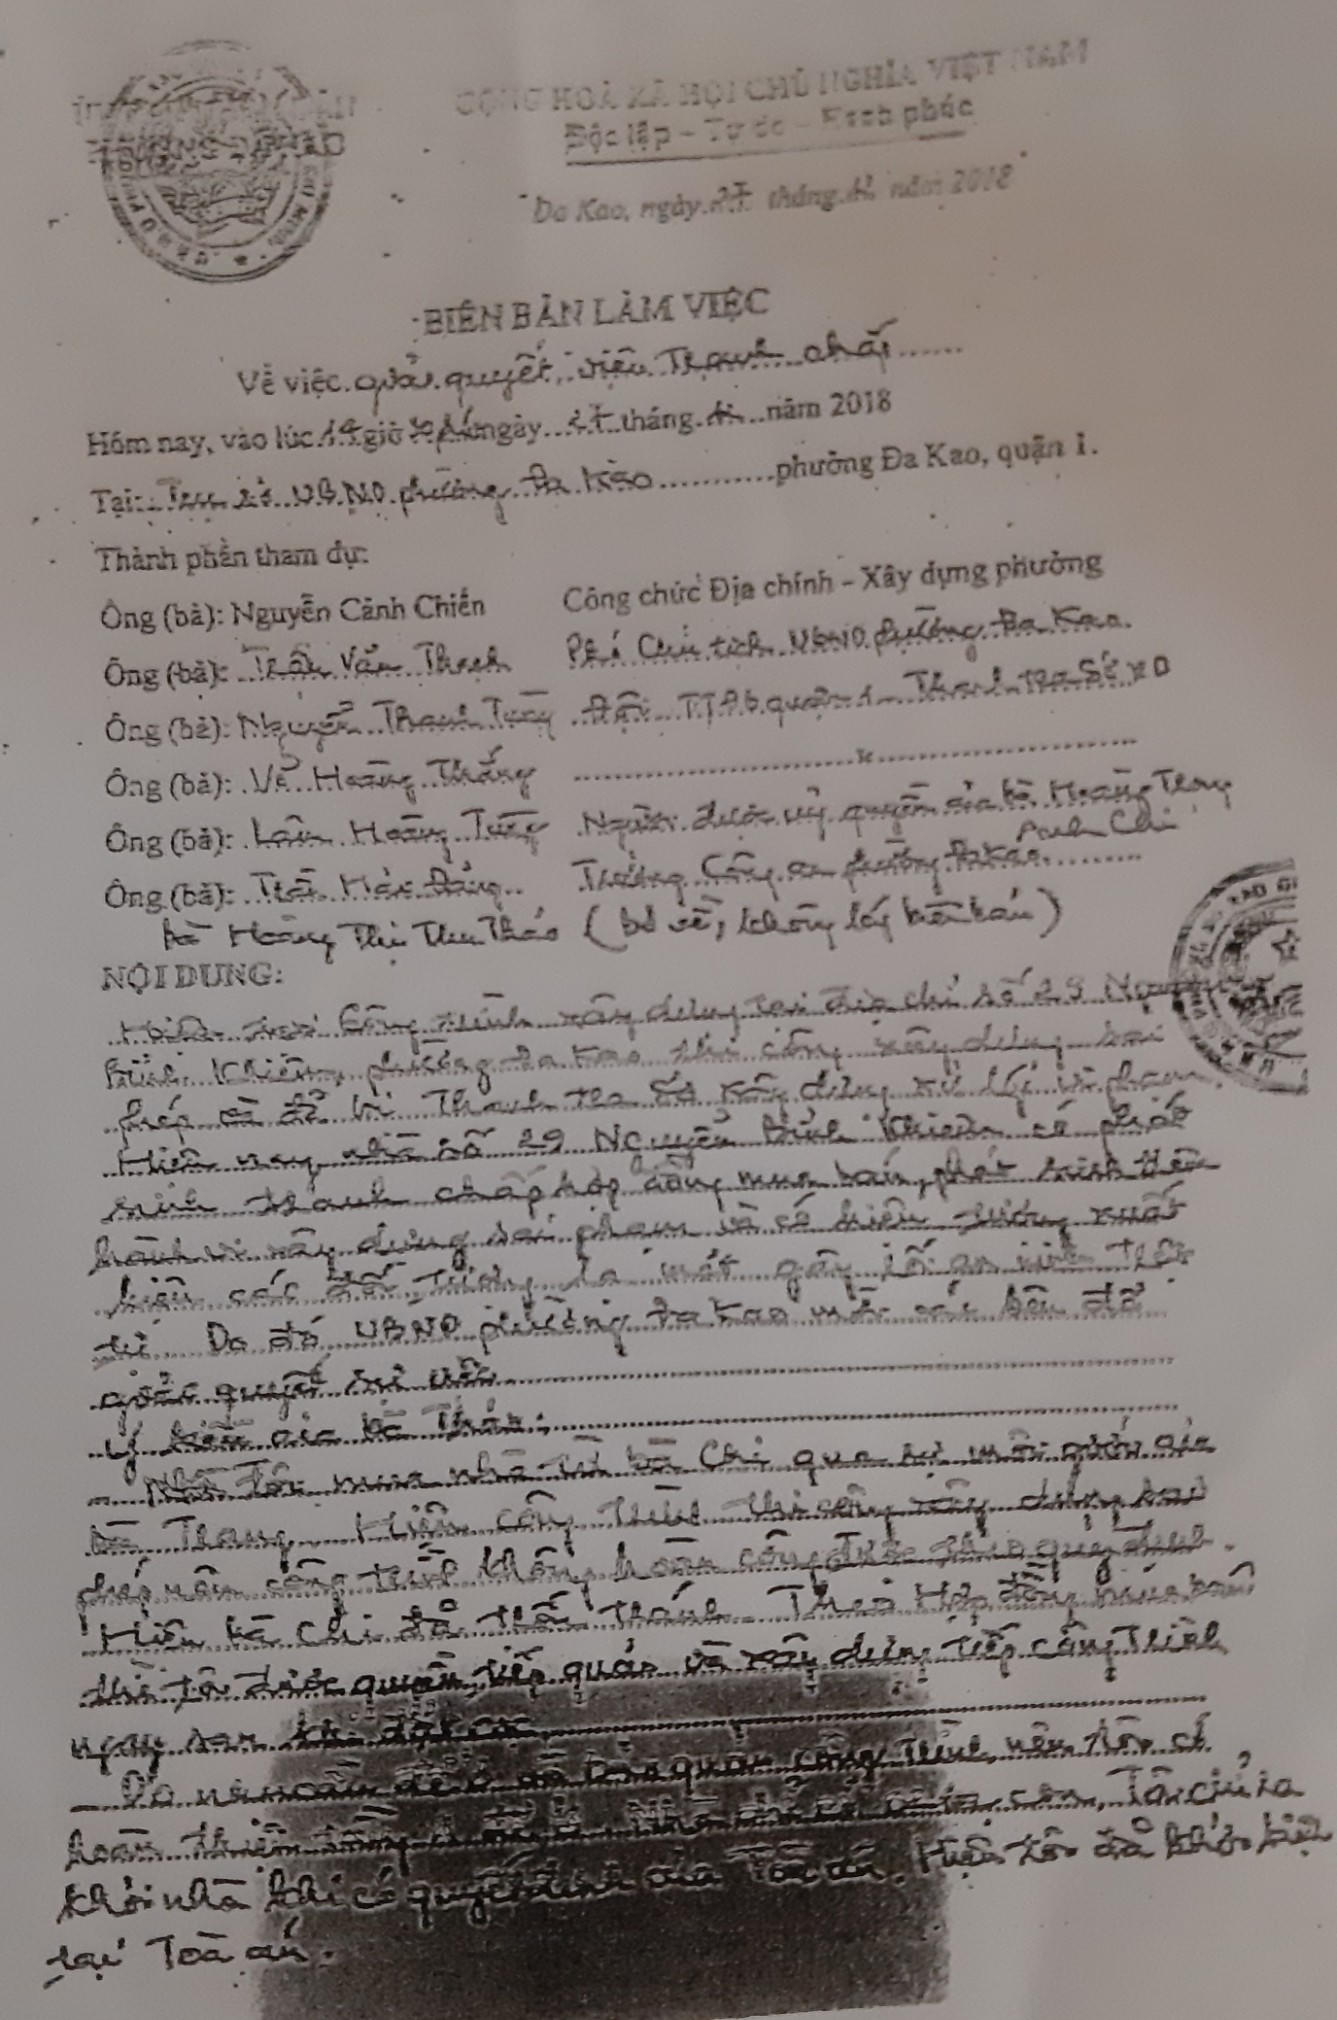 CỘNG HOÀ XÃ HỘI CHỦ NGHĨA VIỆT NAM
Độc lập - Tự do - Hạnh phúc
Đa Kao, ngày tháng năm 2018
BIÊN BẢN LÀM VIỆC
Về việc giải quyết, việc Tranh chấp
Hôm nay, vào lúc 14 giờ ngày 27 tháng năm 2018
Tại: Trụ sở UBND phường Đa Kao phường Đa Kao, quận 1.
Thành phần tham dự:
Ông (bà): Nguyễn Cảnh Chiến Công chức Địa chính - Xây dựng phường
Ông (bà): Trần Văn Thạch Phó Chủ tịch UBND phường Đa Kao
Ông (bà): Nguyễn Thanh Tùng Đội TTĐB quận 1 - Thanh tra Sở XD
Ông (bà): Võ Hoàng Thắng
Ông (bà): Lâm Hoàng Tùng Người được uỷ quyền của bà Hoàng Thùy
Anh Chi
Ông (bà): Trần Hải Đăng Trưởng Công an phường Đa Kao
Bà Hoàng Thị Thu Thảo (bỏ về, không lấy biên bản)
NỘI DUNG:
công trình xây dựng tại địa chỉ số 29 Nguyễn
Bỉnh Khiêm, phường Đa Kao thi công xây dựng sai
phép và đã bị Thanh tra Sở Xây dựng xử lý vi phạm.
Hiện nay nhà số 29 Nguyễn Bỉnh Khiêm có phát
sinh tranh chấp hợp đồng mua bán, phát sinh thêm
hành vi xây dựng sai phạm và có hiện tượng xuất
hiện các đối tượng lạ mặt gây mất an ninh trật
tự. Do đó UBND phường Đa Kao mời các bên để
giải quyết sự việc.
Ý kiến của bà Thảo:
- Nhà tôi mua nhà từ bà Chi qua sự môi giới của
bà Trang. Hiện công trình thi công xây dựng sai
phép nên công trình không hoàn công được theo quy định.
Hiện bà Chi đã Theo Hợp đồng mua bán
thì tôi được quyền tiếp quản và xây dựng tiếp công trình
ngay sau khi đặt cọc
quản công trình nên tôi có
hoàn thiện Tôi chỉ ra
khỏi nhà khi có quyết định của Toà án. Hiện tôi đã khởi kiện
tại Toà án.